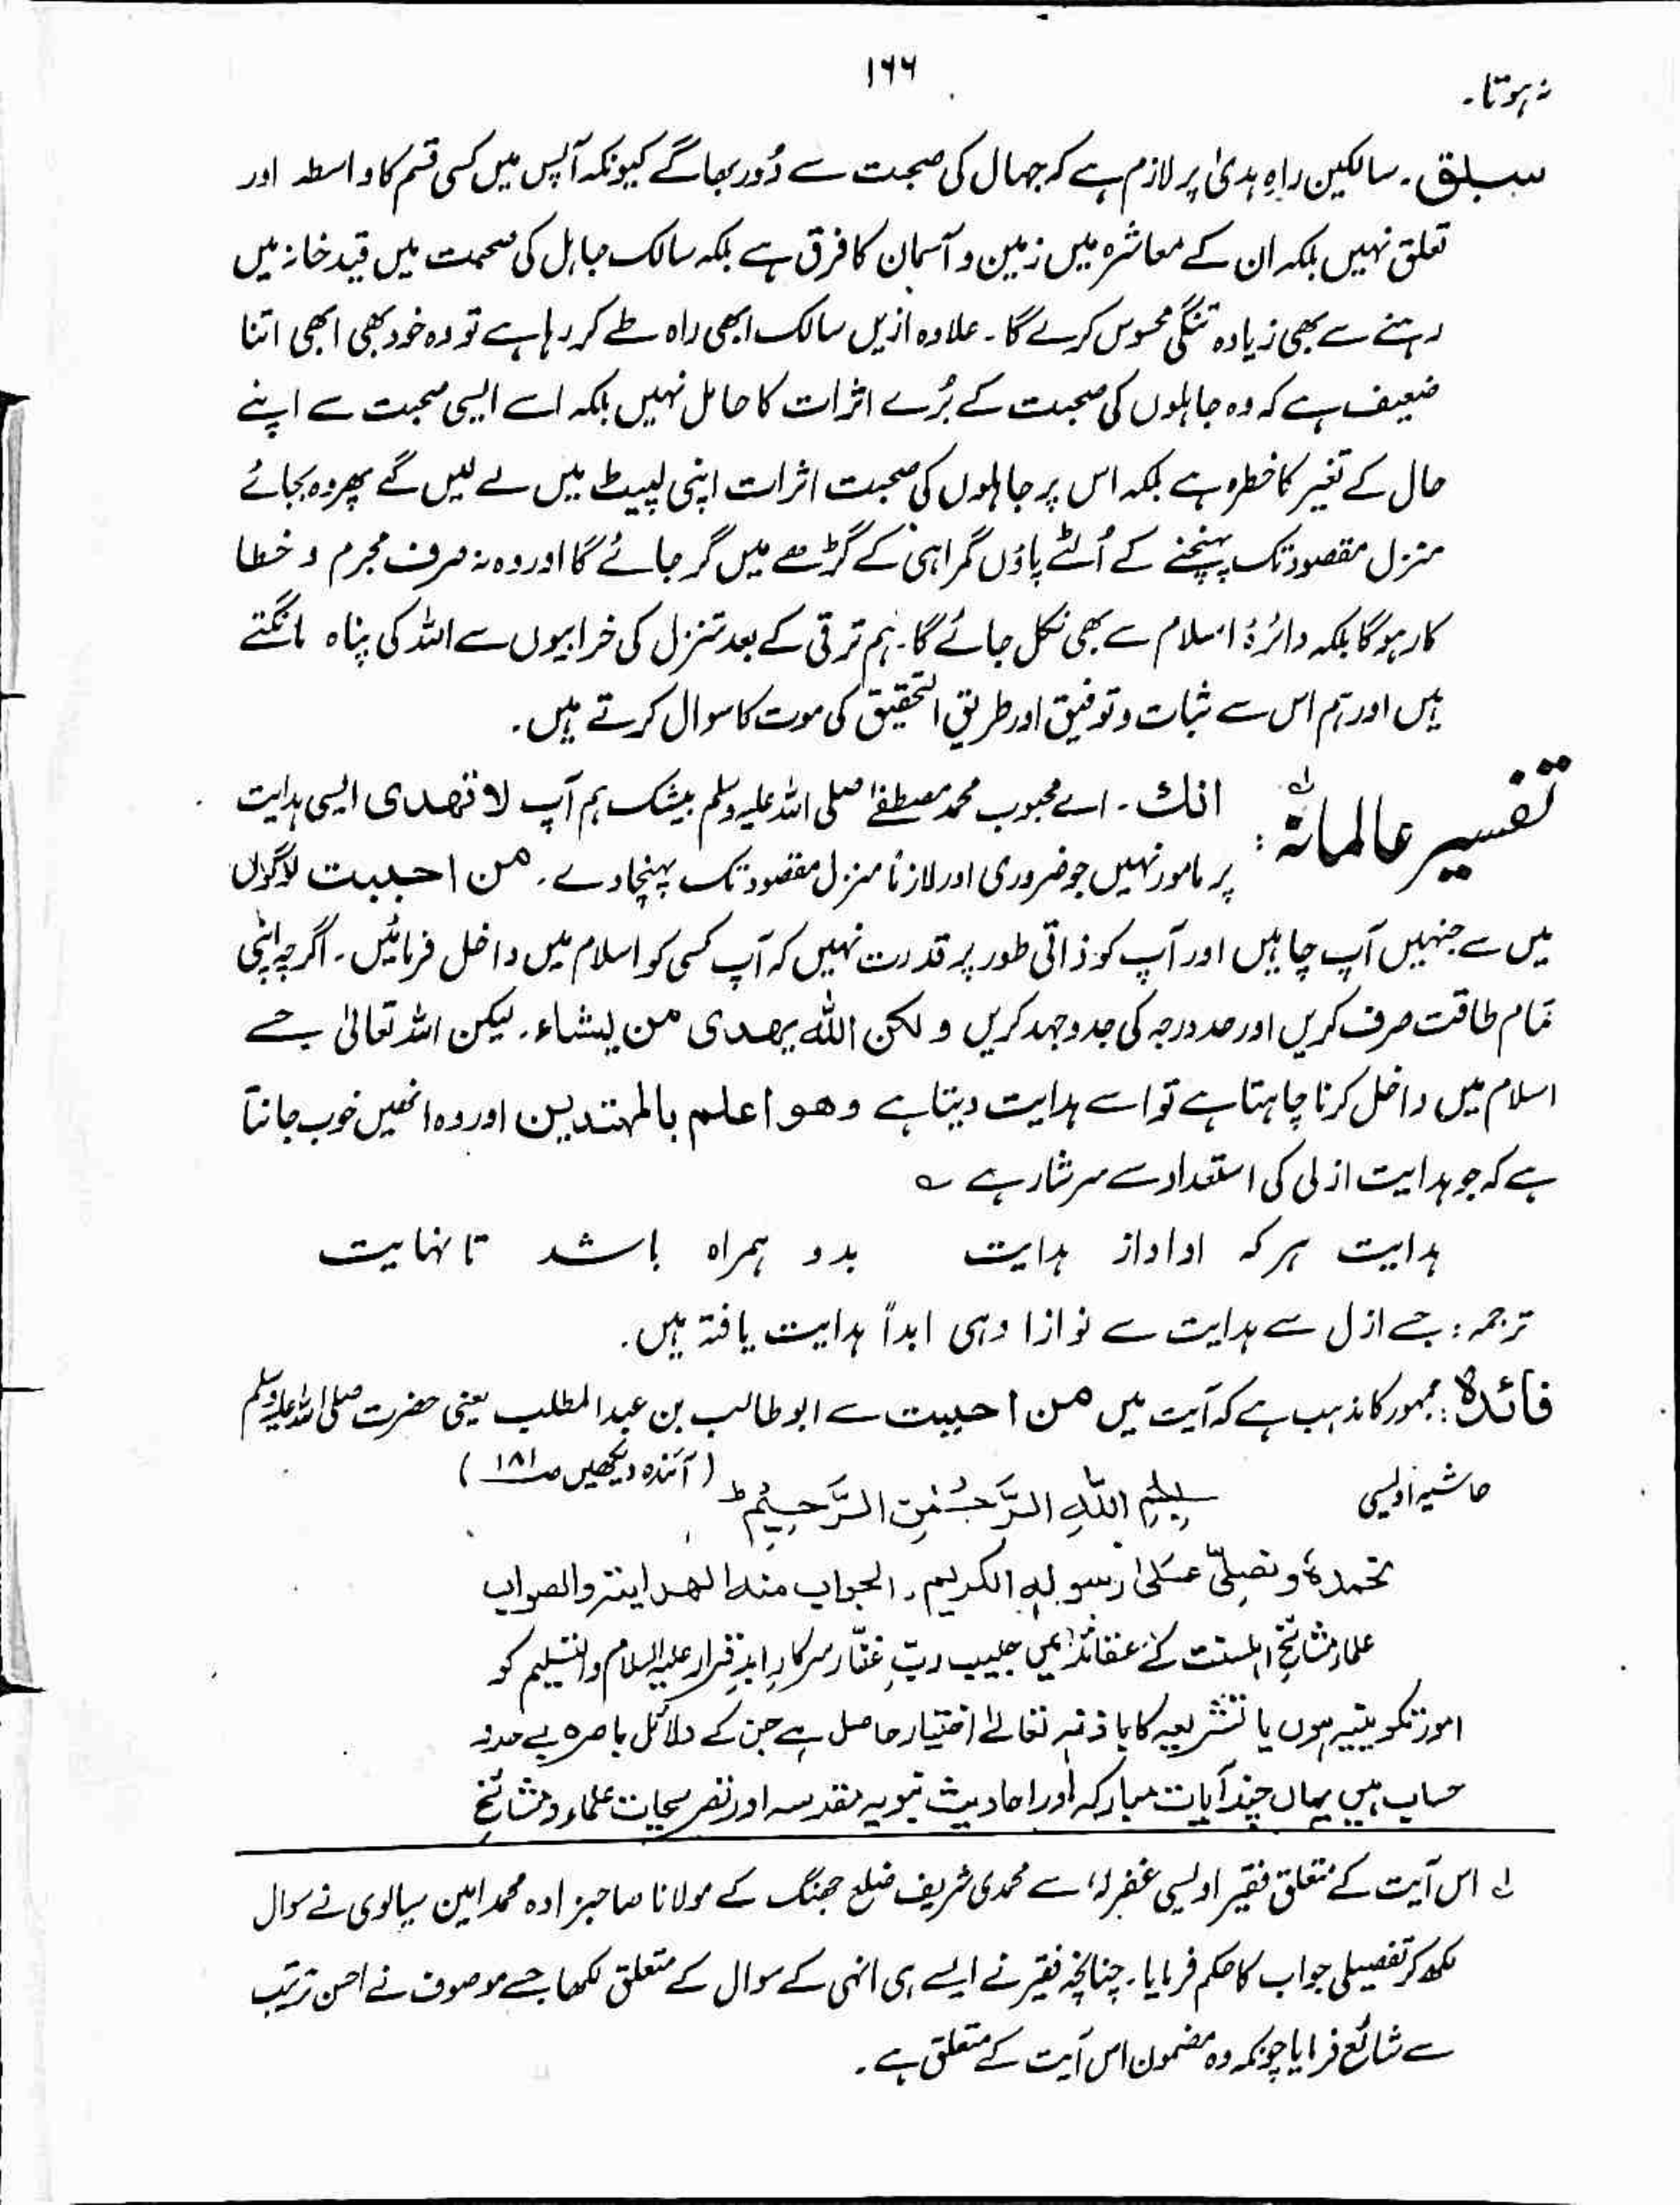 ۱۶۶
نہ ہوتا۔
سبق۔ سالکین راہِ ہدیٰ پر لازم ہے کہ جہال کی صحبت سے دُور بھاگے کیونکہ آپس میں کسی قسم کا واسطہ اور
تعلق نہیں بلکہ ان کے معاشرہ میں زمین و آسمان کا فرق ہے بلکہ سالک جاہل کی صحبت میں قید خانہ میں
رہنے سے بھی زیادہ تنگی محسوس کرے گا۔ علاوہ ازیں سالک ابھی راہ طے کر رہا ہے تو وہ خود بھی ابھی اتنا
ضعیف ہے کہ وہ جاہلوں کی صحبت کے بُرے اثرات کا حامل نہیں بلکہ اسے ایسی صحبت سے اپنے
حال کے تغیر کا خطرہ ہے بلکہ اس پر جاہلوں کی صحبت اثرات اپنی لپیٹ میں لے لیں گے پھر وہ بجائے
منزل مقصود تک پہنچنے کے اُلٹے پاؤں گمراہی کے گڑھے میں گر جائے گا اور وہ نہ صرف مجرم و خطا
کار ہوگا بلکہ دائرۂ اسلام سے بھی نکل جائے گا۔ ہم ترقی کے بعد تنزل کی خرابیوں سے اللہ کی پناہ مانگتے
ہیں اور ہم اس سے ثبات و توفیق اور طریق التحقیق کی موت کا سوال کرتے ہیں۔
تفسیر عالمانہ: انك۔ اے محبوب محمد مصطفےٰ صلی اللہ علیہ وسلم بیشک ہم آپ لا تھدی ایسی ہدایت
پر مامور نہیں جو ضروری اور لازماً منزل مقصود تک پہنچا دے۔ من احببت لوگوں
میں سے جنہیں آپ چاہیں اور آپ کو ذاتی طور پر قدرت نہیں کہ آپ کسی کو اسلام میں داخل فرمائیں۔ اگرچہ اپنی
تمام طاقت صرف کریں اور حد درجہ کی جدوجہد کریں و لکن اللہ یھدی من یشاء۔ لیکن اللہ تعالیٰ جسے
اسلام میں داخل کرنا چاہتا ہے تو اسے ہدایت دیتا ہے وھو اعلم بالمھتدین اور وہ انھیں خوب جانتا
ہے کہ جو ہدایت ازلی کی استعداد سے سرشار ہے ؎
ہدایت ہر کہ او داد از ہدایت بدو ہمراہ باشد تا نہایت
ترجمہ: جسے ازل سے ہدایت سے نوازا وہی ابداً ہدایت یافتہ ہیں۔
فائدہ: جمہور کا مذہب ہے کہ آیت میں من احببت سے ابو طالب بن عبد المطلب یعنی حضرت صلی اللہ علیہ وسلم
(آئندہ دیکھیں ص ۱۸۱)
حاشیہ اویسی بِسْمِ اللّٰہِ الرَّحْمٰنِ الرَّحِیْمِ ط
نحمدہٗ و نصلّی علیٰ رسولہِ الکریم۔ الجواب منہ الھدایۃ والصواب
علماء و مشائخ اہلسنت کے عقائد میں حبیب ربِّ غفّار سرکار ابد قرار علیہ السلام والتسلیم کو
امور تکوینیہ ہوں یا تشریعیہ کا باذنہ تعالےٰ اختیار حاصل ہے جن کے دلائل باصرہ بے حد و
حساب ہیں یہاں چند آیات مبارکہ اور احادیث نبویہ مقدسہ اور تصریحات علماء و مشائخ
لے اس آیت کے متعلق فقیر اویسی غفرلہٗ سے محمدی شریف ضلع جھنگ کے مولانا صاحبزادہ محمد امین سیالوی نے سوال
لکھ کر تفصیلی جواب کا حکم فرمایا۔ چنانچہ فقیر نے ایسے ہی انہی کے سوال کے متعلق لکھا جسے موصوف نے احسن ترتیب
سے شائع فرمایا چونکہ وہ مضمون اس آیت کے متعلق ہے۔